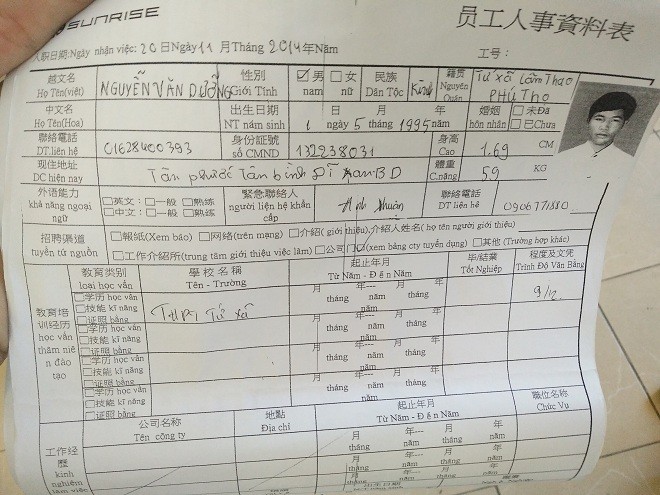 SUNRISE
员工人事資料表
入职日期:Ngày nhận việc: 20 日Ngày 11 月Tháng 2014 年Năm 工号:
越文名 Họ Tên(việt) NGUYỄN VĂN DƯỠNG 性別 Giới Tính ☑男 nam □女 nữ 民族 Dân Tộc Kinh 籍贯 Nguyên Quán Tứ xã Lâm Thao PHÚ THỌ
中文名 Họ Tên(Hoa) 出生日期 NT năm sinh 1 日 ngày 5 月 tháng 1995 年 năm 婚姻 hôn nhân □未Đã □已Chưa
聯絡電話 DT.liên hệ 01628400393 身份証號 số CMND 132238031 身高 Cao 1.69 CM
現住地址 DC hiện nay Tân phước Tân bình Dĩ An BD 體重 C.nặng 59 KG
外语能力 khả năng ngoại ngữ □英文：□一般 □熟练 □中文：□一般 □熟练 緊急聯絡人 người liên hệ khẩn cấp 聯絡電話 DT liên hệ
招聘渠道 tuyển từ nguồn □報紙(Xem báo) □网络(trên mạng) □介紹( giới thiệu),介绍人姓名( họ tên người giới thiệu)
□工作介绍所(trung tâm giới thiệu việc làm) □公司 (xem bảng cty tuyển dụng) □其他 (Trường hợp khác)
教育培训经历 học vấn thâm niên đào tạo 教育类别 loại học vấn 學校名稱 Tên - Trường 起止年月 Từ Năm - Đến Năm 毕/结業 Tốt Nghiệp 程度及文凭 Trình Độ Văn Bằng
□学历 học vấn THPT Tứ Xã 月 tháng 年--- năm 月 tháng 年 năm 9/12
□技能 kĩ năng
□证照 bằng
□学历 học vấn 月 tháng 年--- năm 月 tháng 年 năm
□技能 kĩ năng
□证照 bằng
□学历 học vấn 月 tháng 年--- năm 月 tháng 年 năm
□技能 kĩ năng
□证照 bằng
□学历 học vấn 月 tháng 年--- năm 月 tháng 年 năm
□技能 kĩ năng
□证照 bằng
工作经歷 kinh nghiệm làm việc 公司名称 Tên công ty 地點 Địa chỉ 起止年月 Từ Năm - Đến Năm 職位名称 Chức Vụ
月 tháng 年--- năm 月 tháng 年 năm
月 tháng 年--- năm 月 tháng 年 năm